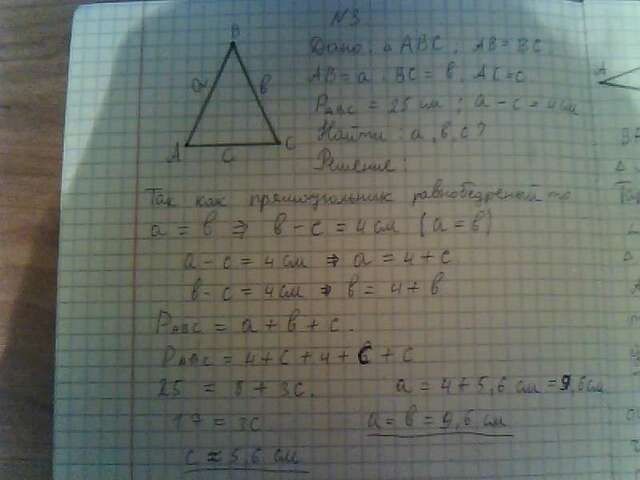 N3
B
a
в
A
C
C
Дано: △ ABC, AB = BC
AB = a, BC = в, AC = c
P ABC = 25 см; a - c = 4 см
Найти: a, в, c?
Решение:
Так как прямоугольник равнобедреный то
a = в ⇒ в - c = 4 см (a = в)
a - c = 4 см ⇒ a = 4 + c
в - c = 4 см ⇒ в = 4 + в
P ABC = a + в + c.
P ABC = 4 + c + 4 + c + c
25 = 8 + 3c. a = 4 + 5,6 см = 9,6 см
17 = 3c a = в = 9,6 см
c ≈ 5,6 см
A